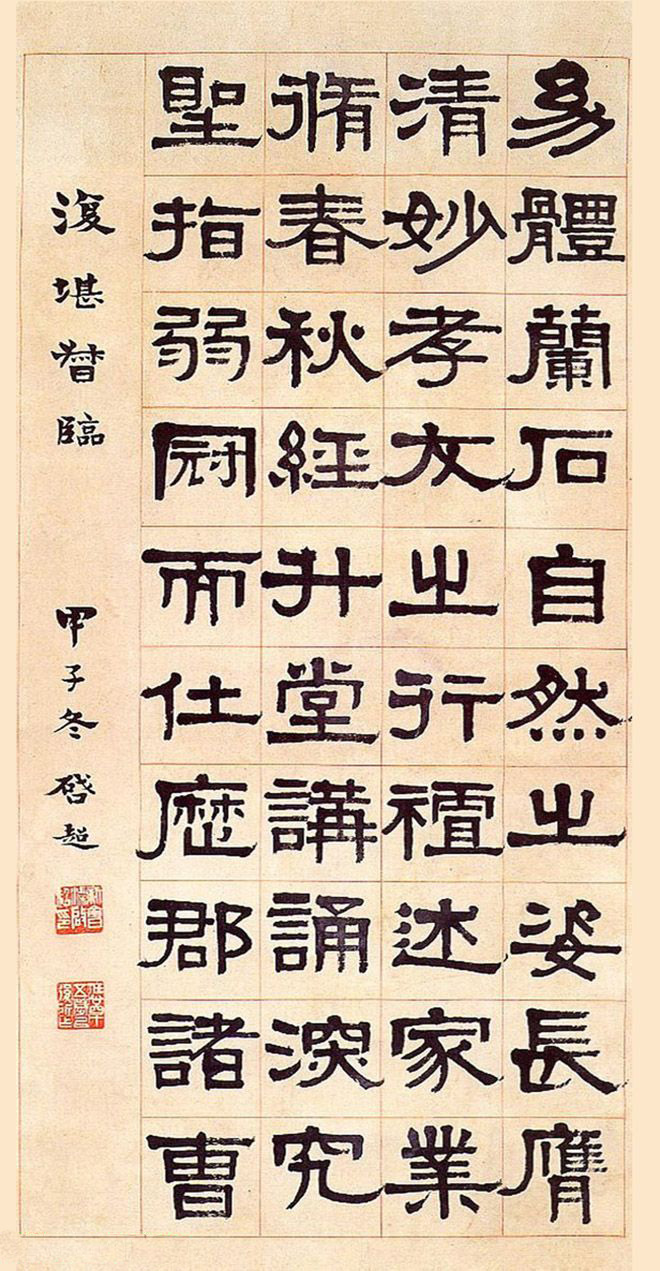 體蘭石自然之姿長膺
清妙孝友之行襢述家業
脩春秋經升堂講誦深究
聖指弱冠而仕歷郡諸曹
復堪督臨
甲子冬 啓超
新會梁啟超印